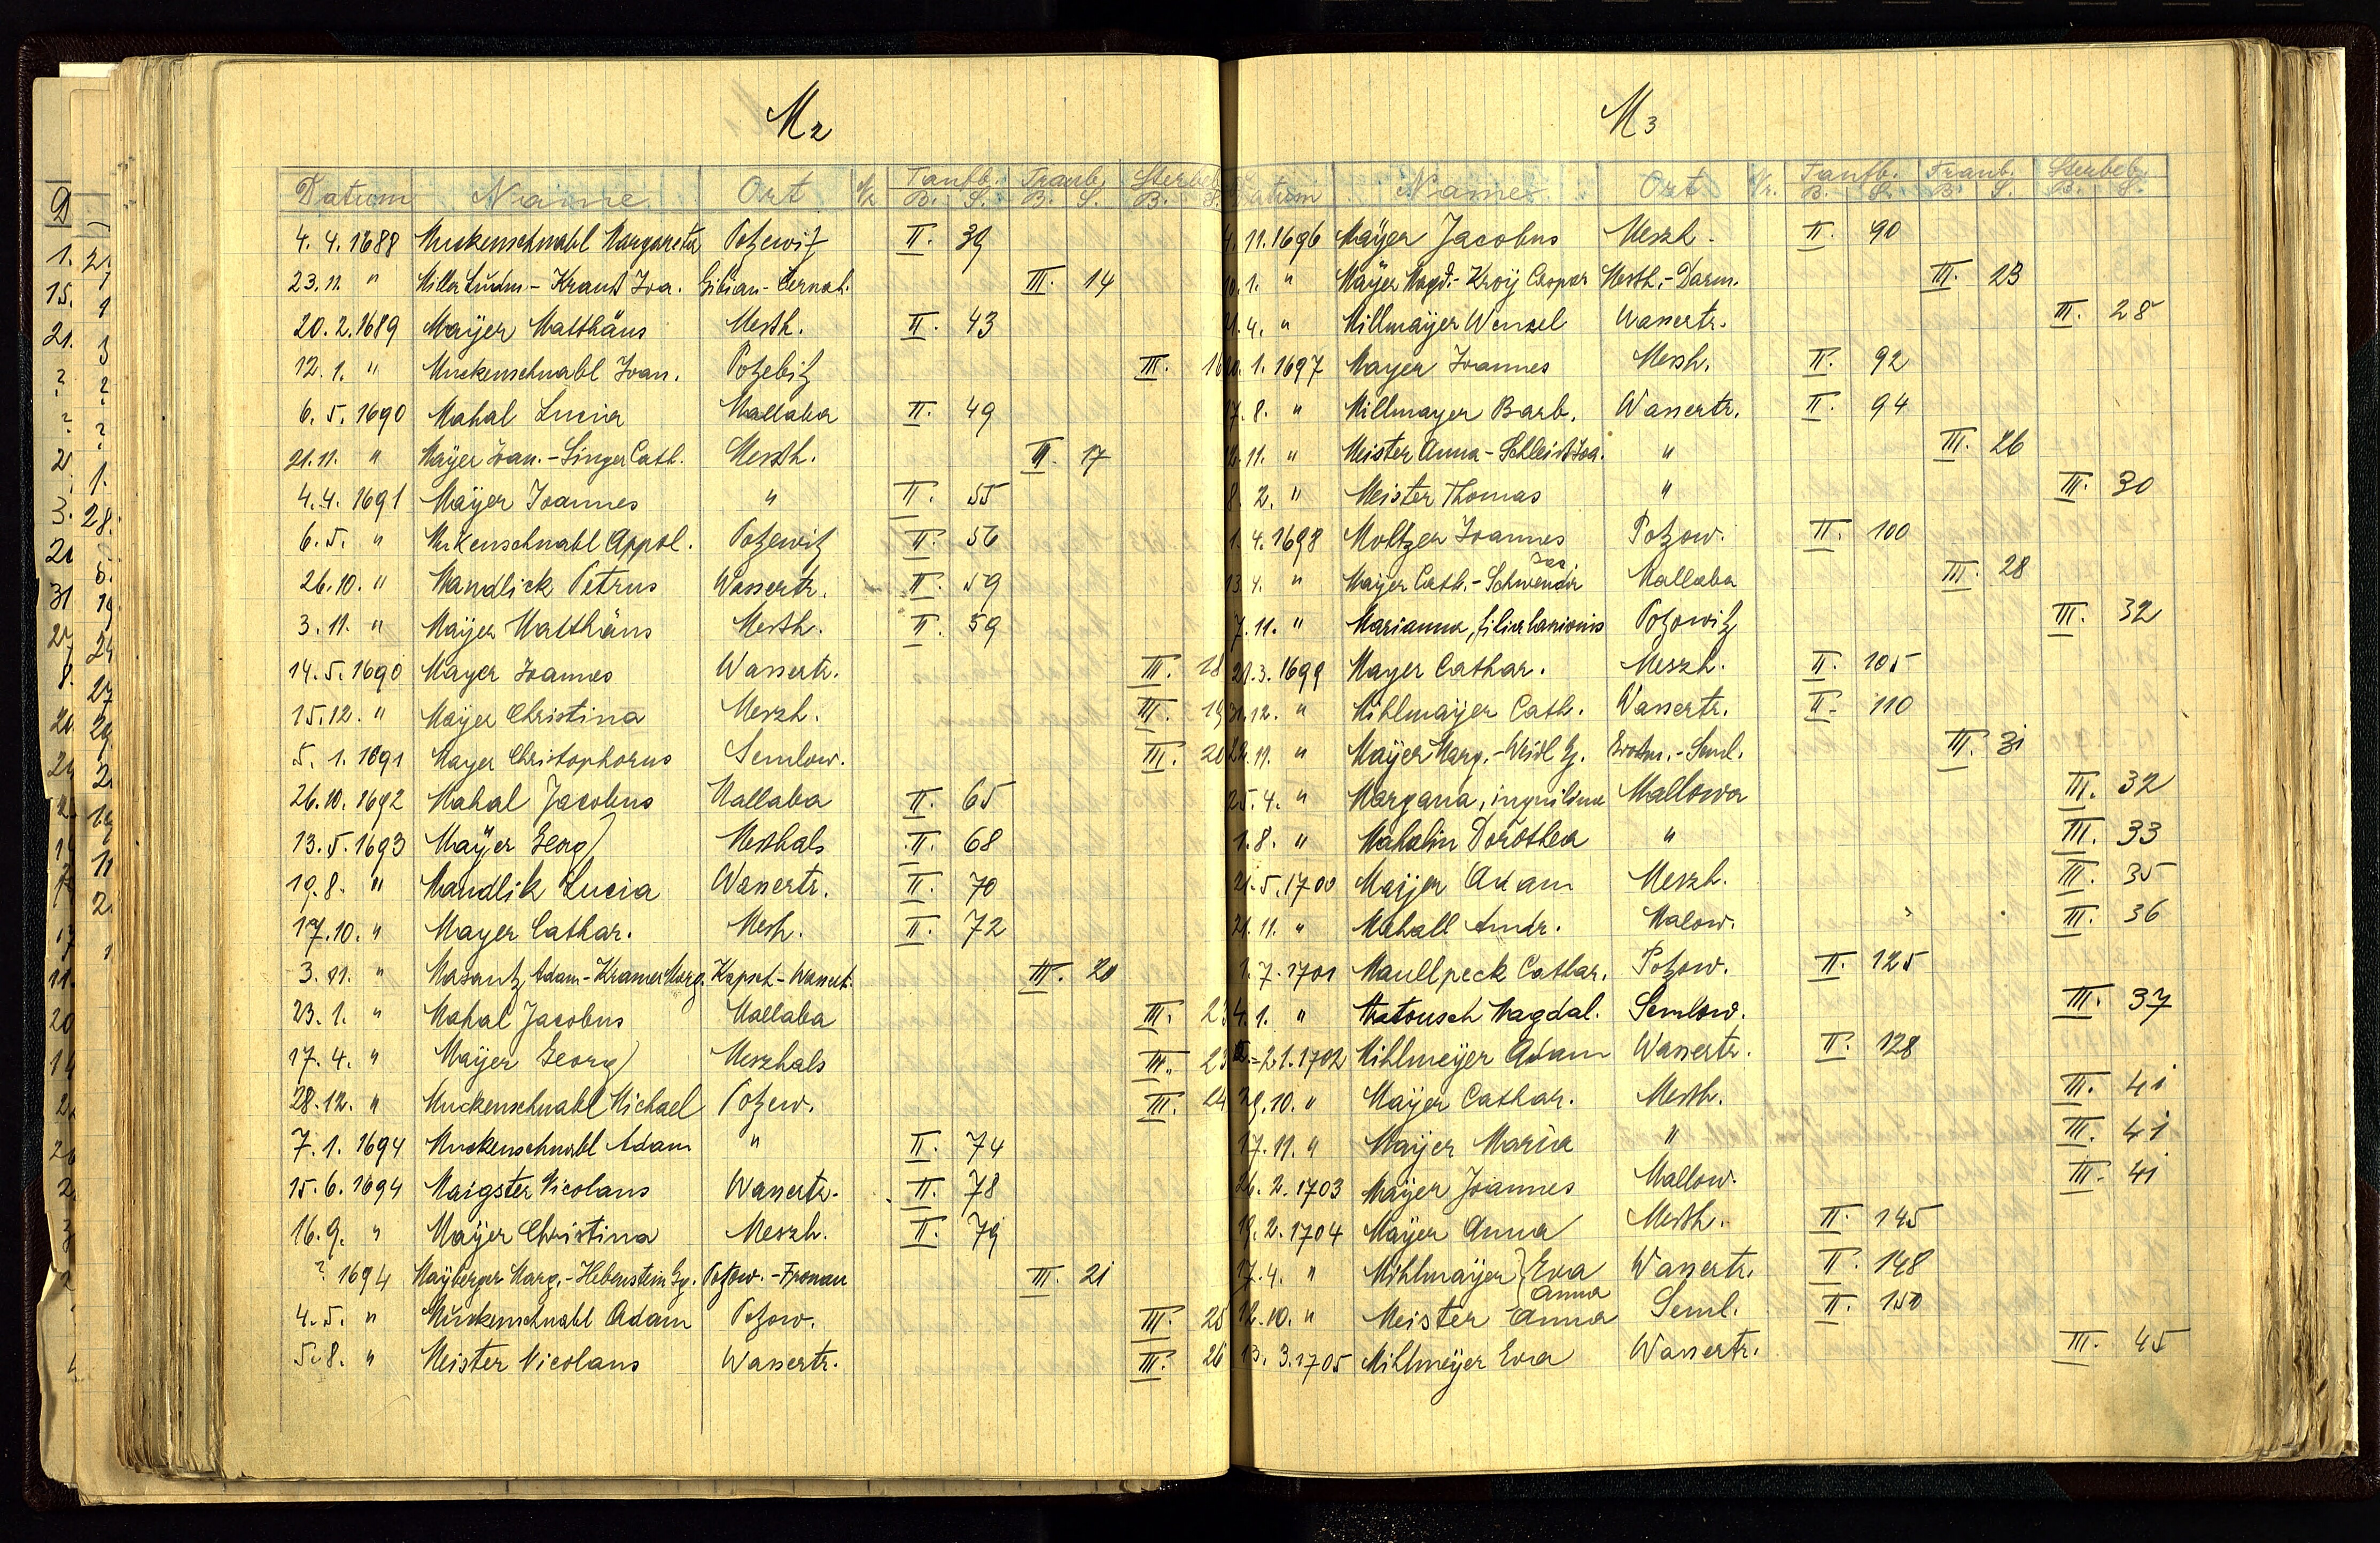 M2
Datum Name Ort Taufb. Traub. Sterbeb.
B. S. B. S. B. S.
4. 4. 1688 Muckenschnabl Margareta Potzewitz II. 39
23. 11. " Miller Ludm. - Kraus Joa. - Cernah. III. 14
20. 2. 1689 Maÿer Matthäus Messh. II. 43
12. 1. " Muckenschnabl Joan. Potzebitz III.
6. 5. 1690 Mahal Lucia Mallaba II. 49
21. 11. " Maÿer Joan. - Singer Cath. Meszh. III. 17
4. 4. 1691 Maÿer Joannes " II. 55
6. 5. " Mukenschnabl Appol. Potzewitz II. 56
26. 10. " Mandlick Petrus Wassertr. II. 59
3. 11. " Maÿer Matthäus Messh. II. 59
14. 5. 1690 Mayer Joannes Wassertr. III. 18
15. 12. " Maÿer Christina Meszh. III. 19
5. 1. 1691 Mayer Christophorus Semlow. III. 20
26. 10. 1692 Mahal Jacobus Mallaba II. 65
13. 5. 1693 Maÿer Georg Messhals II. 68
19. 8. " Mandlik Lucia Wassertr. II. 70
17. 10. " Mayer Cathar. Messh. II. 72
3. 11. " Masantz Adam - Kramer Marg. Kapsch - Wassert. III. 20
23. 1. " Mahal Jacobus Mallaba III. 23
17. 4. " Maÿer Georg Meszhals III. 23
28. 12. " Muckenschnabl Michael Potzew. III. 24
7. 1. 1694 Muckenschnabl Adam " II. 74
15. 6. 1694 Maigster Nicolaus Wassertr. II. 78
16. 9. " Maÿer Christina Meszh. II. 79
? 1694 Maÿberger Marg. - Hebenstein Gg. Potzow. - Fronau III. 21
4. 5. " Muckenschnabl Adam Potzow. III. 25
5. 8. " Meister Nicolaus Wassertr. III. 26
M3
Datum Name Ort Nr. Taufb. Traub. Sterbeb.
B. S. B. S. B. S.
11. 1696 Maÿer Jacobus Meszh. II. 90
1. " Maÿer Magd. - Kroÿ Caspar Messh. - Darm. III. 23
4. " Millmaÿer Wenzel Wassertr. III. 28
1. 1697 Mayer Joannes Messh. II. 92
8. " Millmayer Barb. Wassertr. II. 94
11. " Meister Anna - Joa. " III. 26
8. 2. " Meister Thomas " III. 30
1. 4. 1698 Moltzer Joannes Potzow. II. 100
13. 4. " Mayer Cath. - Schwendir Mallaba III. 28
7. 11. " Marianna, filia lanionis Potzowitz III. 32
21. 3. 1699 Mayer Cathar. Meszh. II. 105
12. " Mihlmaÿer Cath. Wassertr. II. 110
11. " Maÿer Marg. - Weidl Gg. - Seml. III. 31
25. 4. " Margana, inquilina Mallowa III. 32
1. 8. " Mahalin Dorothea " III. 33
21. 5. 1700 Maÿer Adam Meszh. III. 35
21. 11. " Mahall Andr. Malow. III. 36
1. 7. 1701 Maullpeck Cathar. Potzow. II. 125
4. 1. " Matousch Magdal. Semlow. III. 37
2. 1. 1702 Mihlmeÿer Adam Wassertr. II. 128
29. 10. " Maÿer Cathar. Messh. III. 41
17. 11. " Mayer Maria " III. 41
26. 2. 1703 Maÿer Joannes Mallow. III. 41
19. 2. 1704 Maÿer Anna Messh. II. 145
17. 4. " Mihlmaÿer Eva Wassertr. II. 148
Anna
12. 10. " Meister Anna Seml. II. 150
13. 3. 1705 Mihlmeÿer Eva Wassertr. III. 45